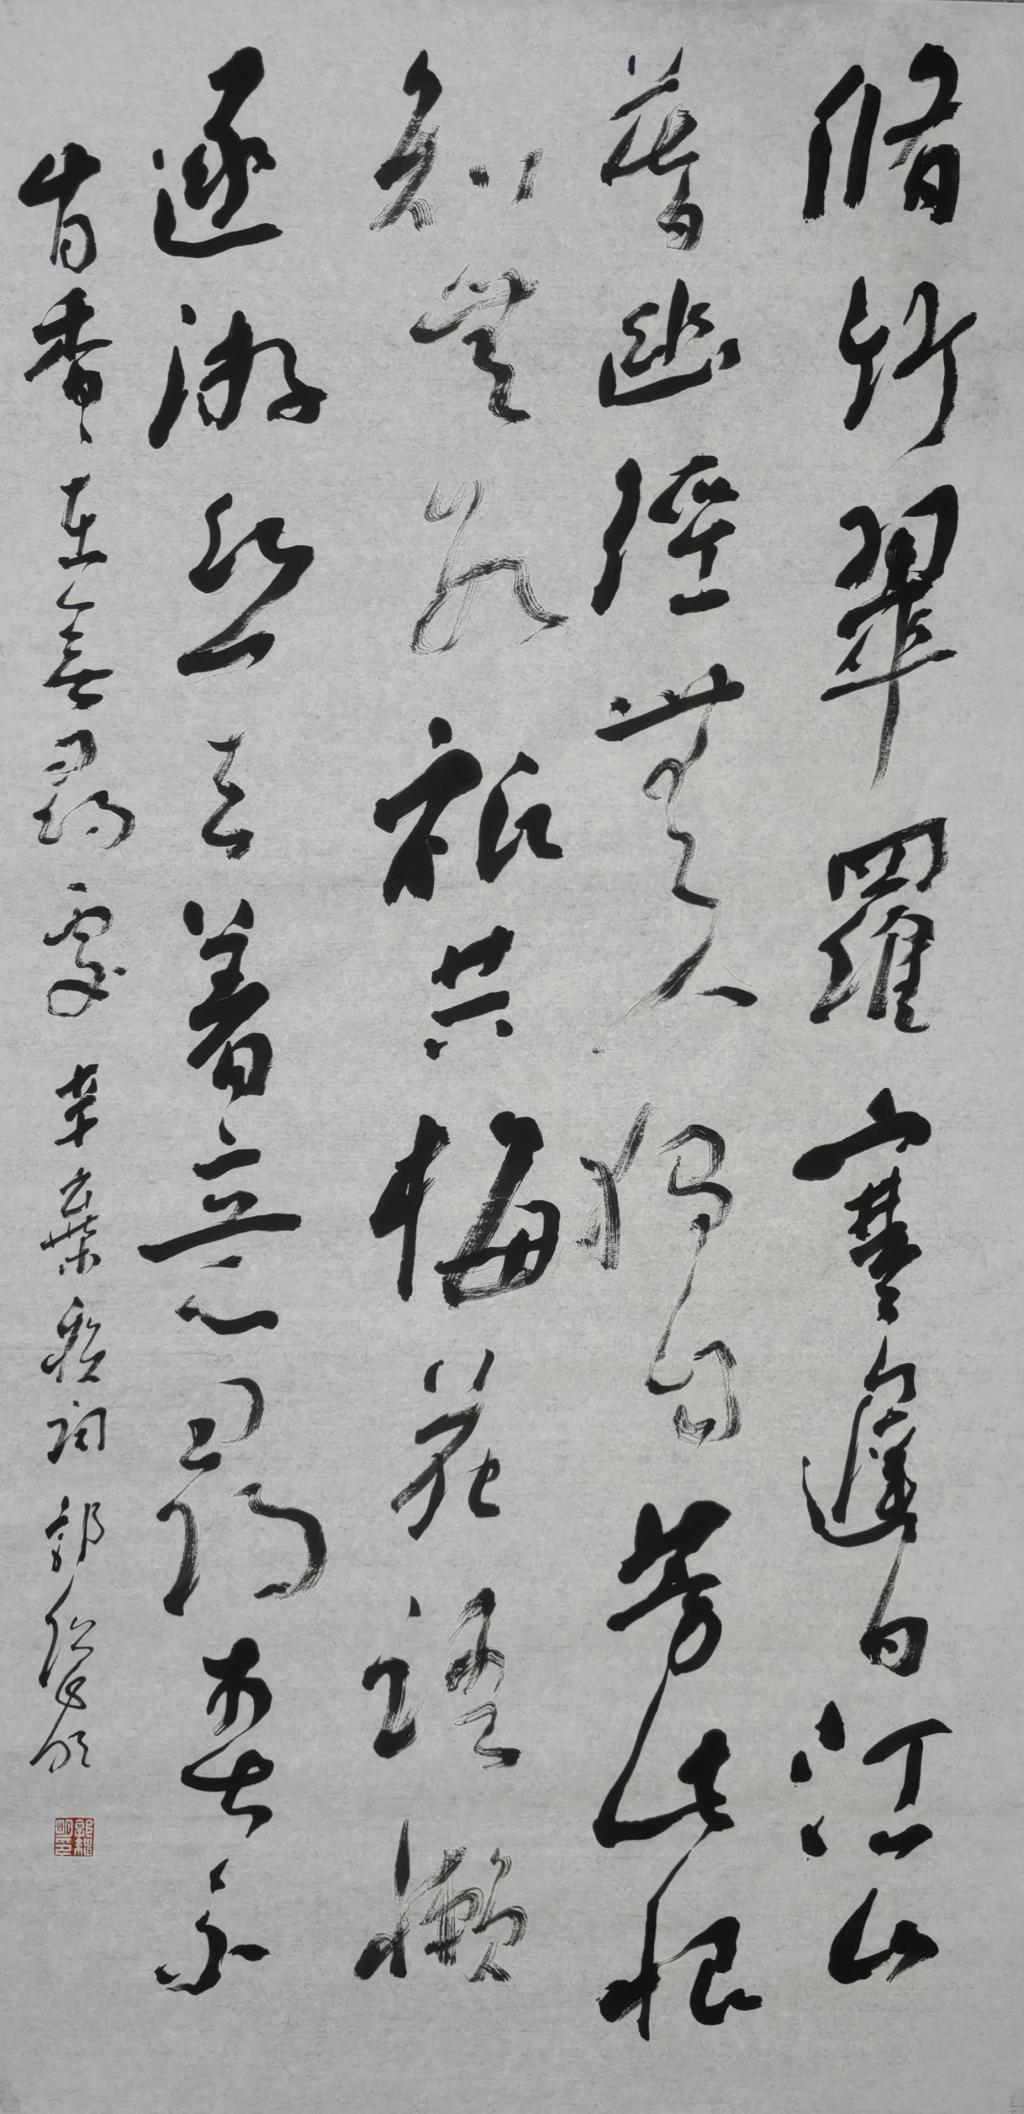 脩竹翠羅寒遲日江山
暮幽徑無人獨自芳此恨
知無數祗共梅花語懶
逐游丝去着意尋春不
肯香々在無尋處 辛棄疾詞 郭継明